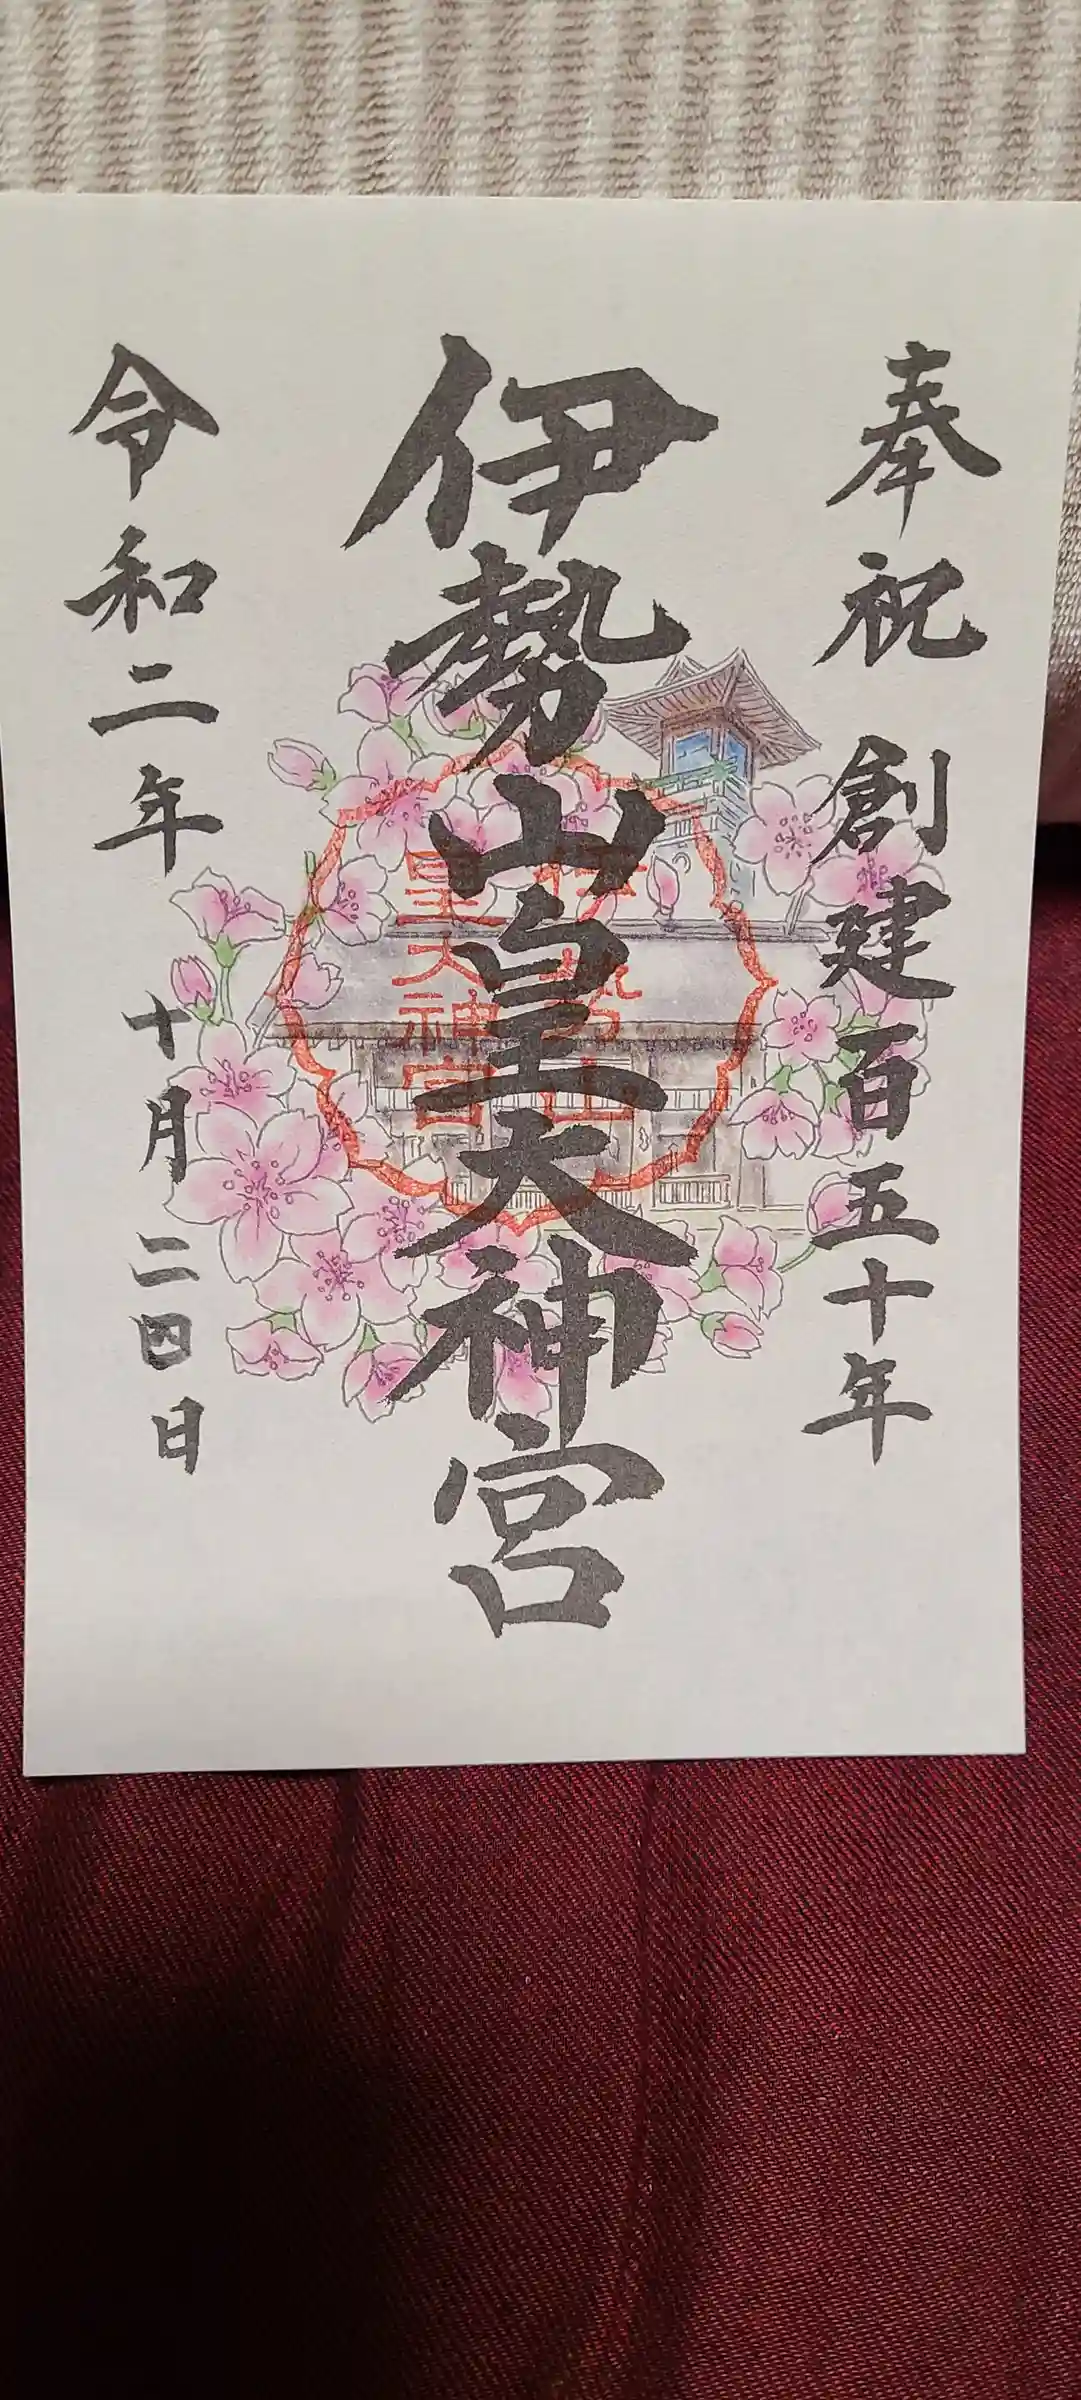 奉祝 創建百五十年
伊勢山皇大神宮
伊勢山
皇大神宮
令和二年 十月二四日